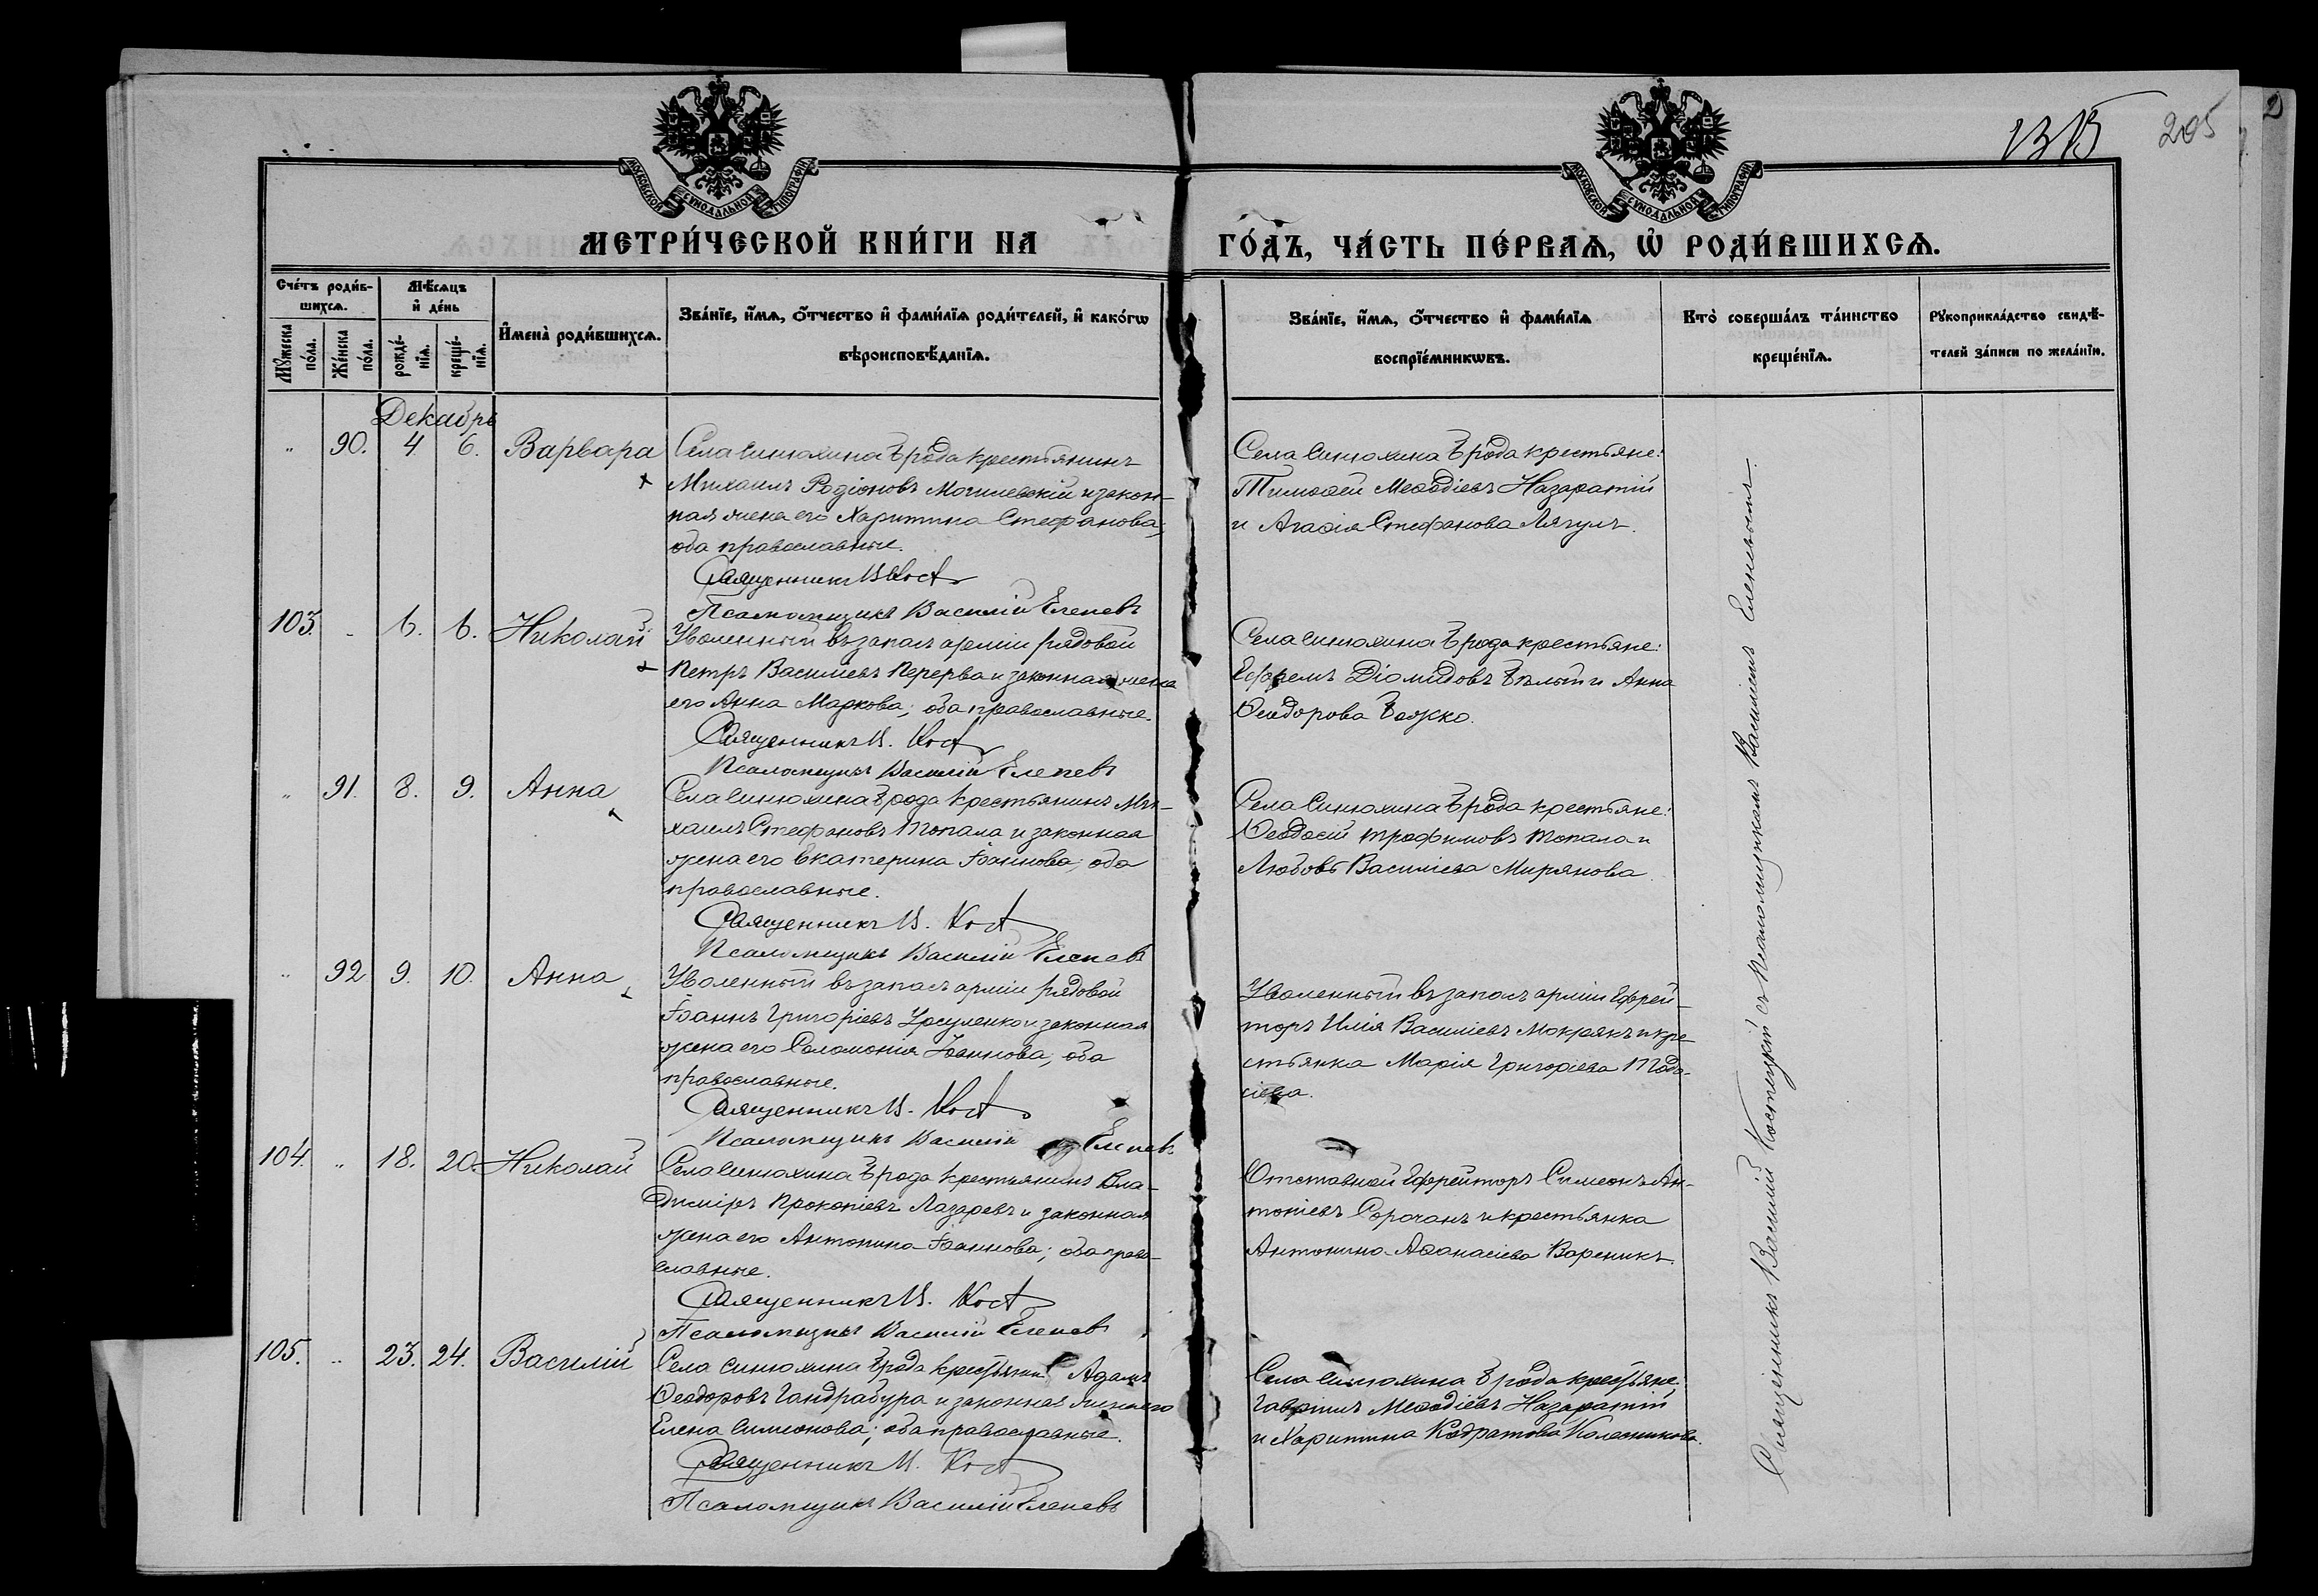 1315
205
2
МОСКОВСКОЙ СѴНОДАЛЬНОЙ ТИПОГРАФІИ
МОСКОВСКОЙ СѴНОДАЛЬНОЙ ТИПОГРАФІИ
МЕТРИ́ЧЕСКОЙ КНИ́ГИ НА
ГО́ДЪ, ЧА́СТЬ ПЕ́РВАѦ, Ѡ҆ РОДИ́ВШИХСѦ.
Сче́тъ роди́в-
шихсѧ.
Мꙋ́жеска
по́ла.
Же́нска
по́ла.
Мѣ́сѧцъ
и҆ де́нь
рожде́-
нїѧ.
креще́-
нїѧ.
И҆мена̀ роди́вшихсѧ.
Зва́нїе, и҆́мѧ, ѻ҆́тчество и҆ фами́лїѧ роди́телей, и҆ како́гѡ
вѣроисповѣ́данїѧ.
Зва́нїе, и҆́мѧ, ѻ҆́тчество и҆ фами́лїѧ
воспрїе́мникѡвъ.
Кто̀ соверша́лъ та́инство
креще́нїѧ.
Рꙋкоприкла́дство свидѣ́-
телей за́писи по жела́нїю.
Декабрь
" 90. 4 6. Варвара
Села Синюхина Брода крестьянинъ
Михаилъ Родіоновъ Могилевскій и закон-
ная жена его Харитина Стефанова;
оба православные.
Священникъ В. Кост
Псаломщикъ Василій Еленевъ
Села Синюхина Брода крестьяне:
Тимофей Меѳодіевъ Назаратій
и Агафія Стефанова Лягулъ.
103. " 6. 6. Николай
Уволенный въ запасъ арміи рядовой
Петръ Василіевъ Перерва и законная жена
его Анна Маркова; оба православные.
Священникъ В. Кост
Псаломщикъ Василій Еленевъ
Села Синюхина Брода крестьяне:
Ефремъ Діомидовъ Бѣлый и Анна
Ѳеодорова Божко.
" 91. 8. 9. Анна
Села Синюхина Брода крестьянинъ Ми-
хаилъ Стефановъ Топала и законная
жена его Екатерина Іоаннова; оба
православные.
Священникъ В. Кост
Псаломщикъ Василій Еленевъ
Села Синюхина Брода крестьяне:
Ѳеодосій Трофимовъ Топала и
Любовь Василіева Мирянова.
" 92 9. 10. Анна
Уволенный въ запасъ арміи рядовой
Іоаннъ Григоріевъ Урсуленко и законная
жена его Соломонія Іоаннова; оба
православные.
Священникъ В. Кост
Псаломщикъ Василій Еленевъ
Уволенный въ запасъ арміи Ефрей-
торъ Илія Василіевъ Мокрякъ и кре-
стьянка Марія Григоріева Тодо-
сіева.
104. " 18. 20. Николай
Села Синюхина Брода крестьянинъ Вла-
диміръ Прокопіевъ Лазаревъ и законная
жена его Антонина Іоаннова; оба право-
славные.
Священникъ В. Кост
Псаломщикъ Василій Еленевъ
Отставной Ефрейторъ Симеонъ Ан-
тоніевъ Сорочанъ и крестьянка
Антонина Аѳанасіева Вареникъ.
105. " 23. 24. Василій
Села Синюхина Брода крестьянинъ Адамъ
Ѳеодоровъ Гандрабура и законная жена его
Елена Симеонова; оба православные.
Священникъ В. Кост
Псаломщикъ Василій Еленевъ
Села Синюхина Брода крестьяне:
Гавриилъ Меѳодіевъ Назаратій
и Харитина Кодратова Колесникова.
Священникъ Василій Костецкій съ псаломщикомъ Василіемъ Еленевымъ.